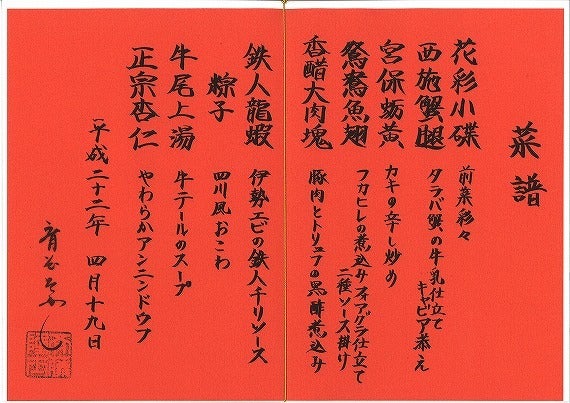 菜譜
花彩小碟 前菜彩々
西施蟹腿 タラバ蟹の牛乳仕立て
キャビア添え
宮保蛎黄 カキの辛し炒め
鴛鴦魚翅 フカヒレの煮込みフォアグラ仕立て
二種ソース掛け
香醋大肉塊 豚肉とトリュフの黒酢煮込み
鉄人龍蝦 伊勢エビの鉄人チリソース
粽子 四川風おこわ
牛尾上湯 牛テールのスープ
正宗杏仁 やわらかアンニンドウフ
平成二十二年 四月十九日